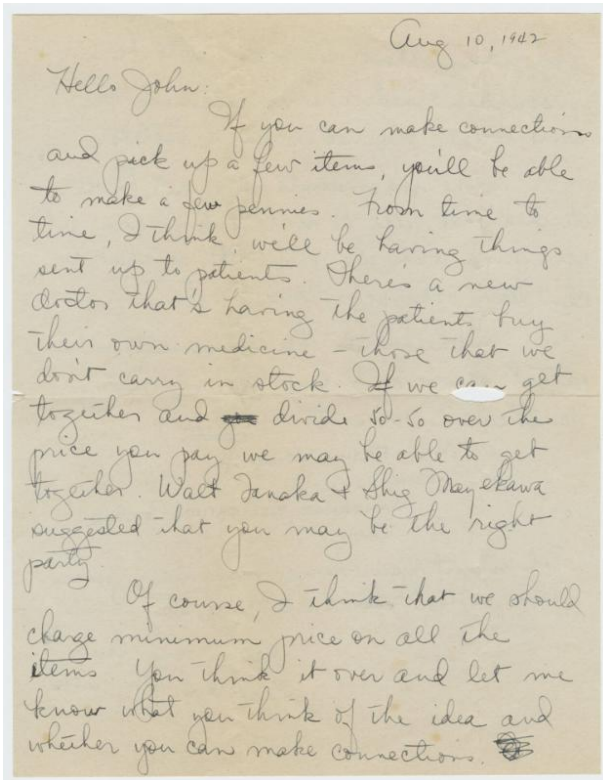 Aug 10, 1942
Hello John:
If you can make connections
and pick up a few items, you'll be able
to make a few pennies. From time to
time, I think we'll be having things
sent up to patients. There's a new
doctor that's having the patients buy
their own medicine – those that we
don't carry in stock. If we can get
together and divide 50-50 over the
price you pay we may be able to get
together. Walt Tanaka & Shig Mayekawa
suggested that you may be the right
party.
Of course, I think that we should
charge minimum price on all the
items You think it over and let me
know what you think of the idea and
whether you can make connections.